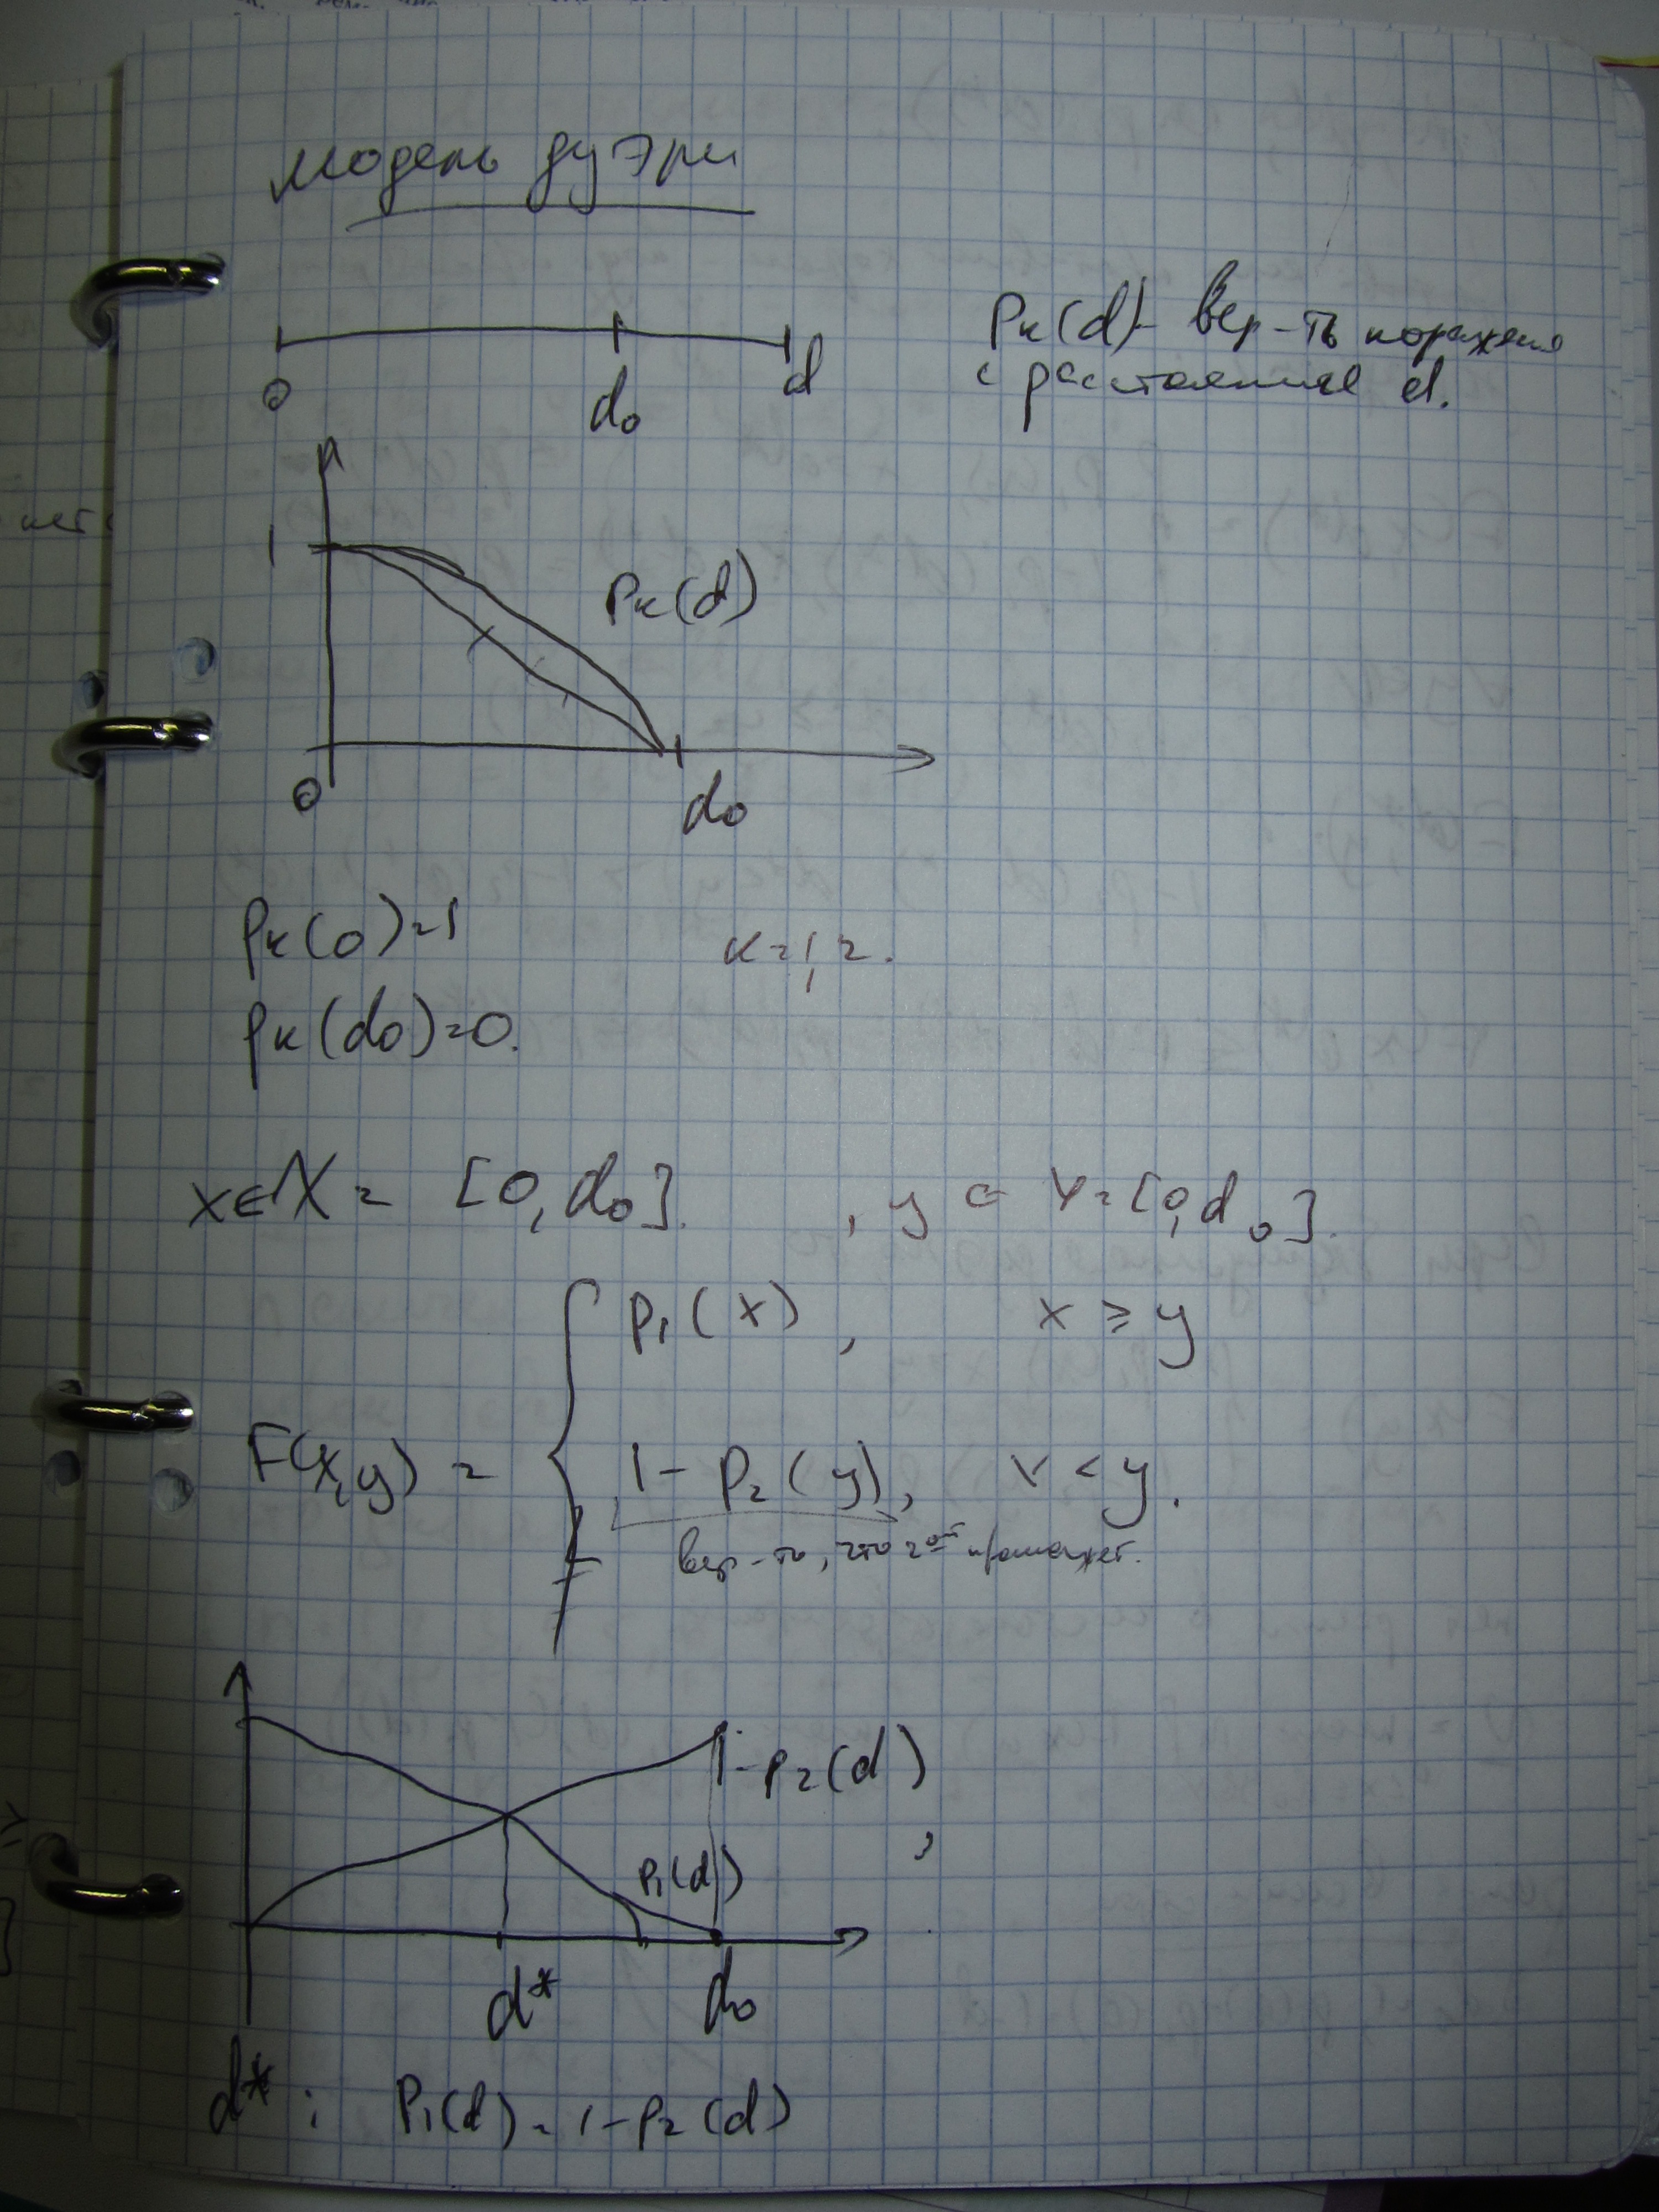 модель дуэли
0 d₀ d
Pₖ(d) - вер-ть поражения
с расстояния d.
1
Pₖ(d)
0 d₀
pₖ(0)=1 к=1,2.
pₖ(d₀)=0.
x∈X = [0,d₀]. , y ∈ Y=[0,d₀].
p₁(x), x ⩾ y
F(x,y) =
1 - p₂(y), x < y.
вер-ть, что 2ой промажет.
1-p₂(d)
,
p₁(d)
d* d₀
d* : P₁(d) = 1-p₂(d)